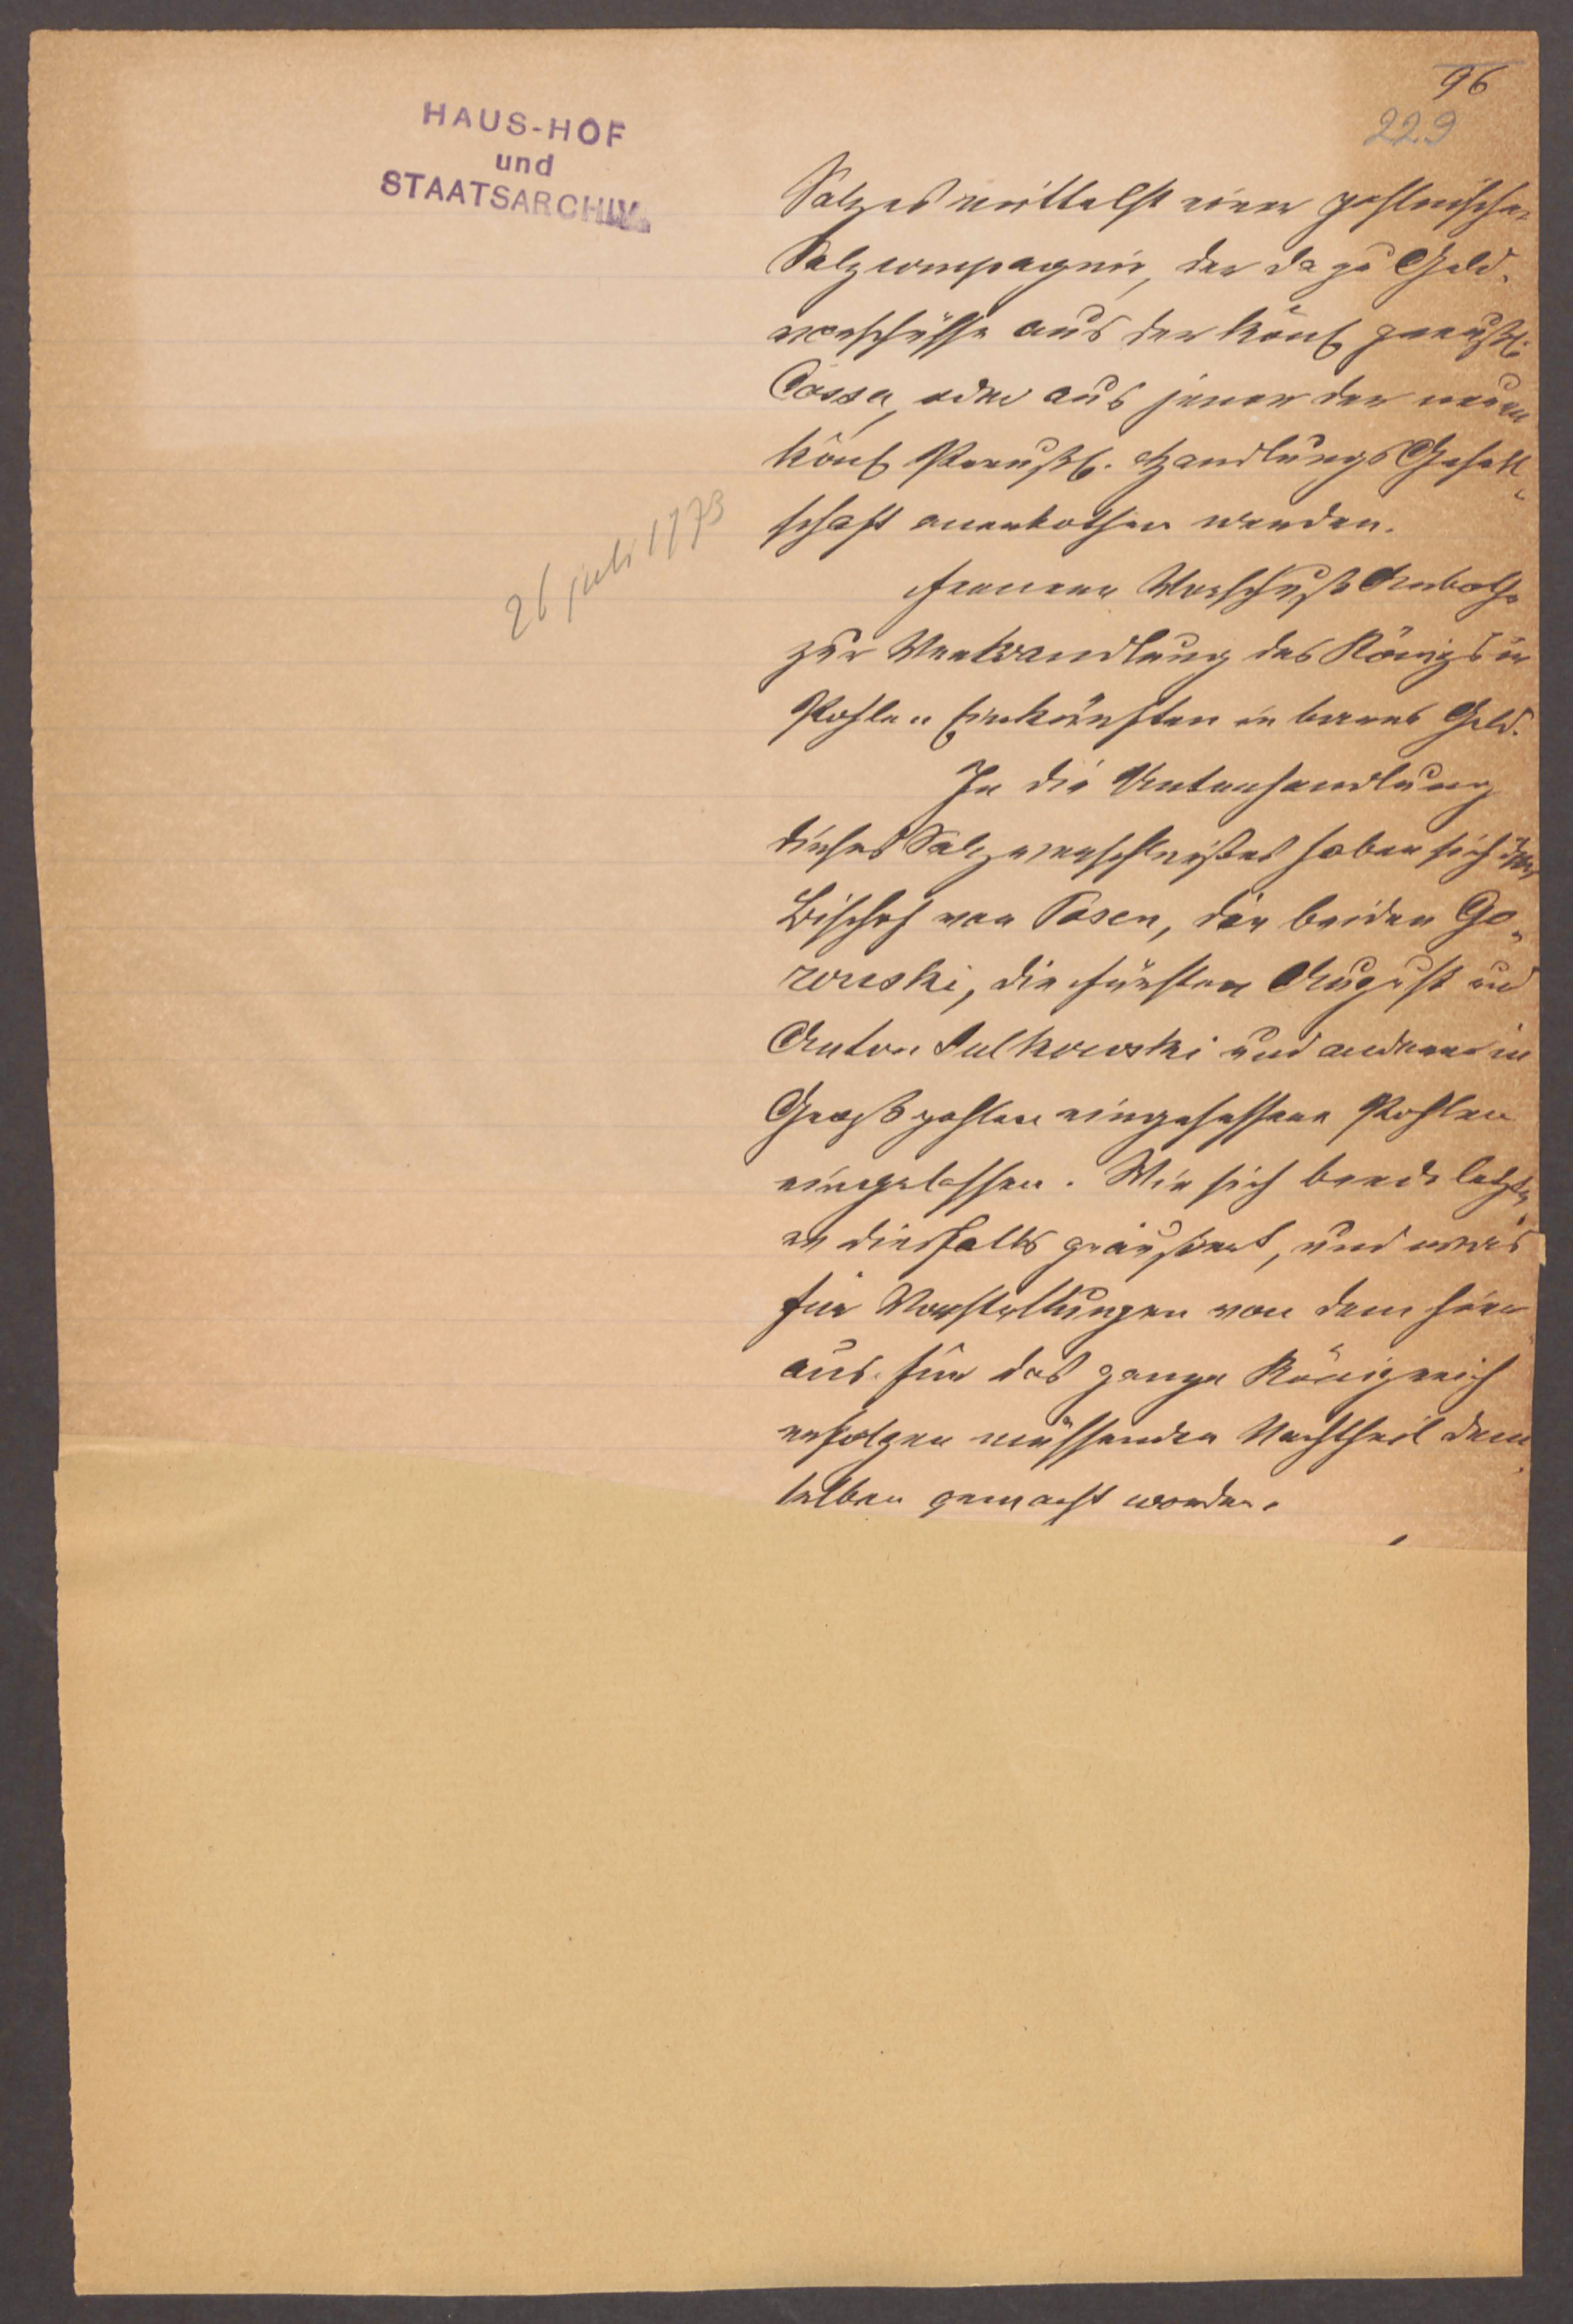 96
229
HAUS-HOF
und
STAATSARCHIV
26 juli 1773
Salzes mittelst einer pohlnischen
Salzcompagnie, der dazu Geld-
vorschüsse aus der könl preußl.
Cassa, oder aus jener der neuen
könl Preußl. Handlungs Gesell-
schaft anerbothen werden.
Fernerer Vorschuß Anboth
zur Verwandlung des Königs in
Pohlen Einkünften in baares Geld.
In die Unterhandlung
dieses Salzverschleißes haben sich der
Bischof von Posen, die beiden Go-
rowski, die Fürsten August und
Anton Sulkowski und andere in
Großpohlen eingesessene Pohlen
eingelassen. Wie sich beede letzte-
re diesfalls geäußert, und was
für Vorstellungen von dem hier-
aus für das ganze Königreich
erfolgen müssenden Nachtheil dem-
selben gemacht worden.